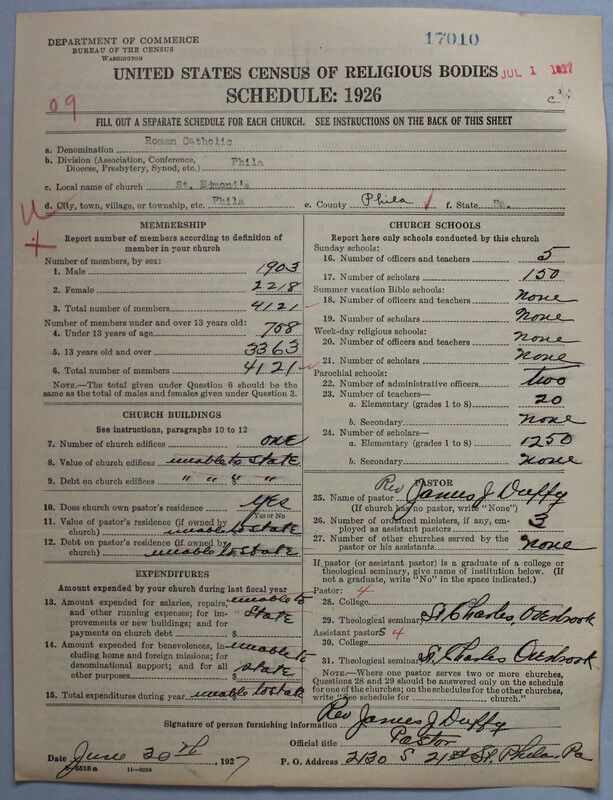 DEPARTMENT OF COMMERCE
BUREAU OF THE CENSUS
WASHINGTON
17010
UNITED STATES CENSUS OF RELIGIOUS BODIES
JUL 1 1927
SCHEDULE: 1926
09
FILL OUT A SEPARATE SCHEDULE FOR EACH CHURCH. SEE INSTRUCTIONS ON THE BACK OF THIS SHEET
a. Denomination Roman Catholic
b. Division (Association, Conference, Diocese, Presbytery, Synod, etc.) Phila
c. Local name of church St. Edmond's
d. City, town, village, or township, etc. Phila e. County Phila f. State Pa.
MEMBERSHIP
Report number of members according to definition of
member in your church
Number of members, by sex:
1. Male 1903
2. Female 2218
3. Total number of members 4121
Number of members under and over 13 years old:
4. Under 13 years of age 758
5. 13 years old and over 3363
6. Total number of members 4121
NOTE.—The total given under Question 6 should be the
same as the total of males and females given under Question 3.
CHURCH BUILDINGS
See instructions, paragraphs 10 to 12
7. Number of church edifices one
8. Value of church edifices unable to state
9. Debt on church edifices " " $ "
10. Does church own pastor's residence? yes
Yes or No
11. Value of pastor's residence (if owned by
church) unable to state
12. Debt on pastor's residence (if owned by
church) unable to state
EXPENDITURES
Amount expended by your church during last fiscal year
13. Amount expended for salaries, repairs, unable to
and other running expenses; for im- state
provements or new buildings; and for
payments on church debt $
14. Amount expended for benevolences, in- unable to
cluding home and foreign missions; for
denominational support; and for all state
other purposes $
15. Total expenditures during year unable to state
CHURCH SCHOOLS
Report here only schools conducted by this church
Sunday schools:
16. Number of officers and teachers 5
17. Number of scholars 150
Summer vacation Bible schools:
18. Number of officers and teachers none
19. Number of scholars None
Week-day religious schools:
20. Number of officers and teachers none
21. Number of scholars None
Parochial schools:
22. Number of administrative officers two
23. Number of teachers—
a. Elementary (grades 1 to 8) 20
b. Secondary none
24. Number of scholars—
a. Elementary (grades 1 to 8) 1250
b. Secondary none
PASTOR
25. Name of pastor Rev James J. Duffy
(If church has no pastor, write "None")
26. Number of ordained ministers, if any, em-
ployed as assistant pastors 3
27. Number of other churches served by the
pastor or his assistants none
If pastor (or assistant pastor) is a graduate of a college or
theological seminary, give name of institution below. (If
not a graduate, write "No" in the space indicated.)
Pastor: 4
28. College
29. Theological seminary St. Charles, Overbrook
Assistant pastorS 4
30. College
31. Theological seminary St. Charles Overbrook.
NOTE.—Where one pastor serves two or more churches,
Questions 28 and 29 should be answered only on the schedule
for one of the churches; on the schedules for the other churches,
write "See schedule for church."
Signature of person furnishing information Rev James J. Duffy
Official title Pastor
Date June 30th, 1927 P. O. Address 2130 S 21st St. Phila. Pa
11—9034